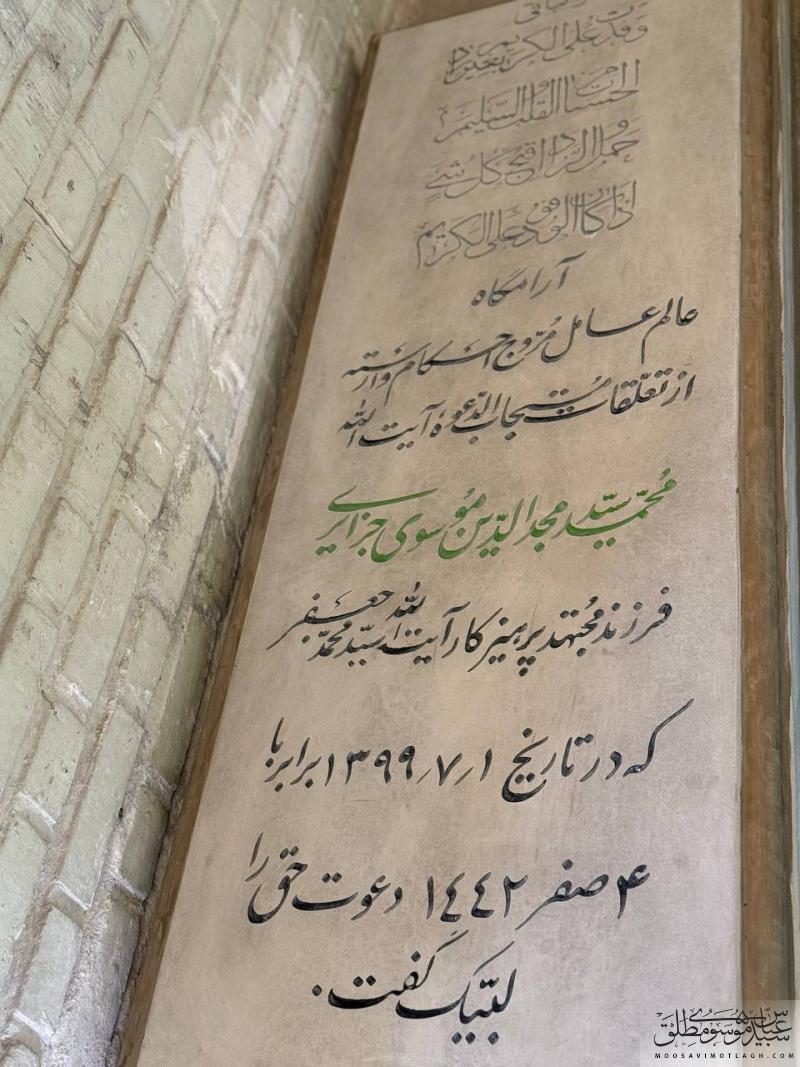 وفدت علی الکریم بغیر زاد
من الحسنات والقلب السلیم
وحمل الزاد اقبح کل شیء
اذا کان الوفود علی الکریم
آرامگاه
عالم عامل مُرّوج احکام وارسته
از تعلّقات مُستجاب الدّعوه آیت الله
سیّد محمّد مجدالدّین موسوی جزایری
فرزند مجتهد پرهیزکار آیت الله سیّد محمّد جعفر
که در تاریخ ۱٫۷٫۱۳۹۹ برابر با
۴ صفر ۱٤٤۲ دعوت حق را
لبّیک گفت.
سید عباس موسوی مطلق
MOOSAVIMOTLAGH.COM